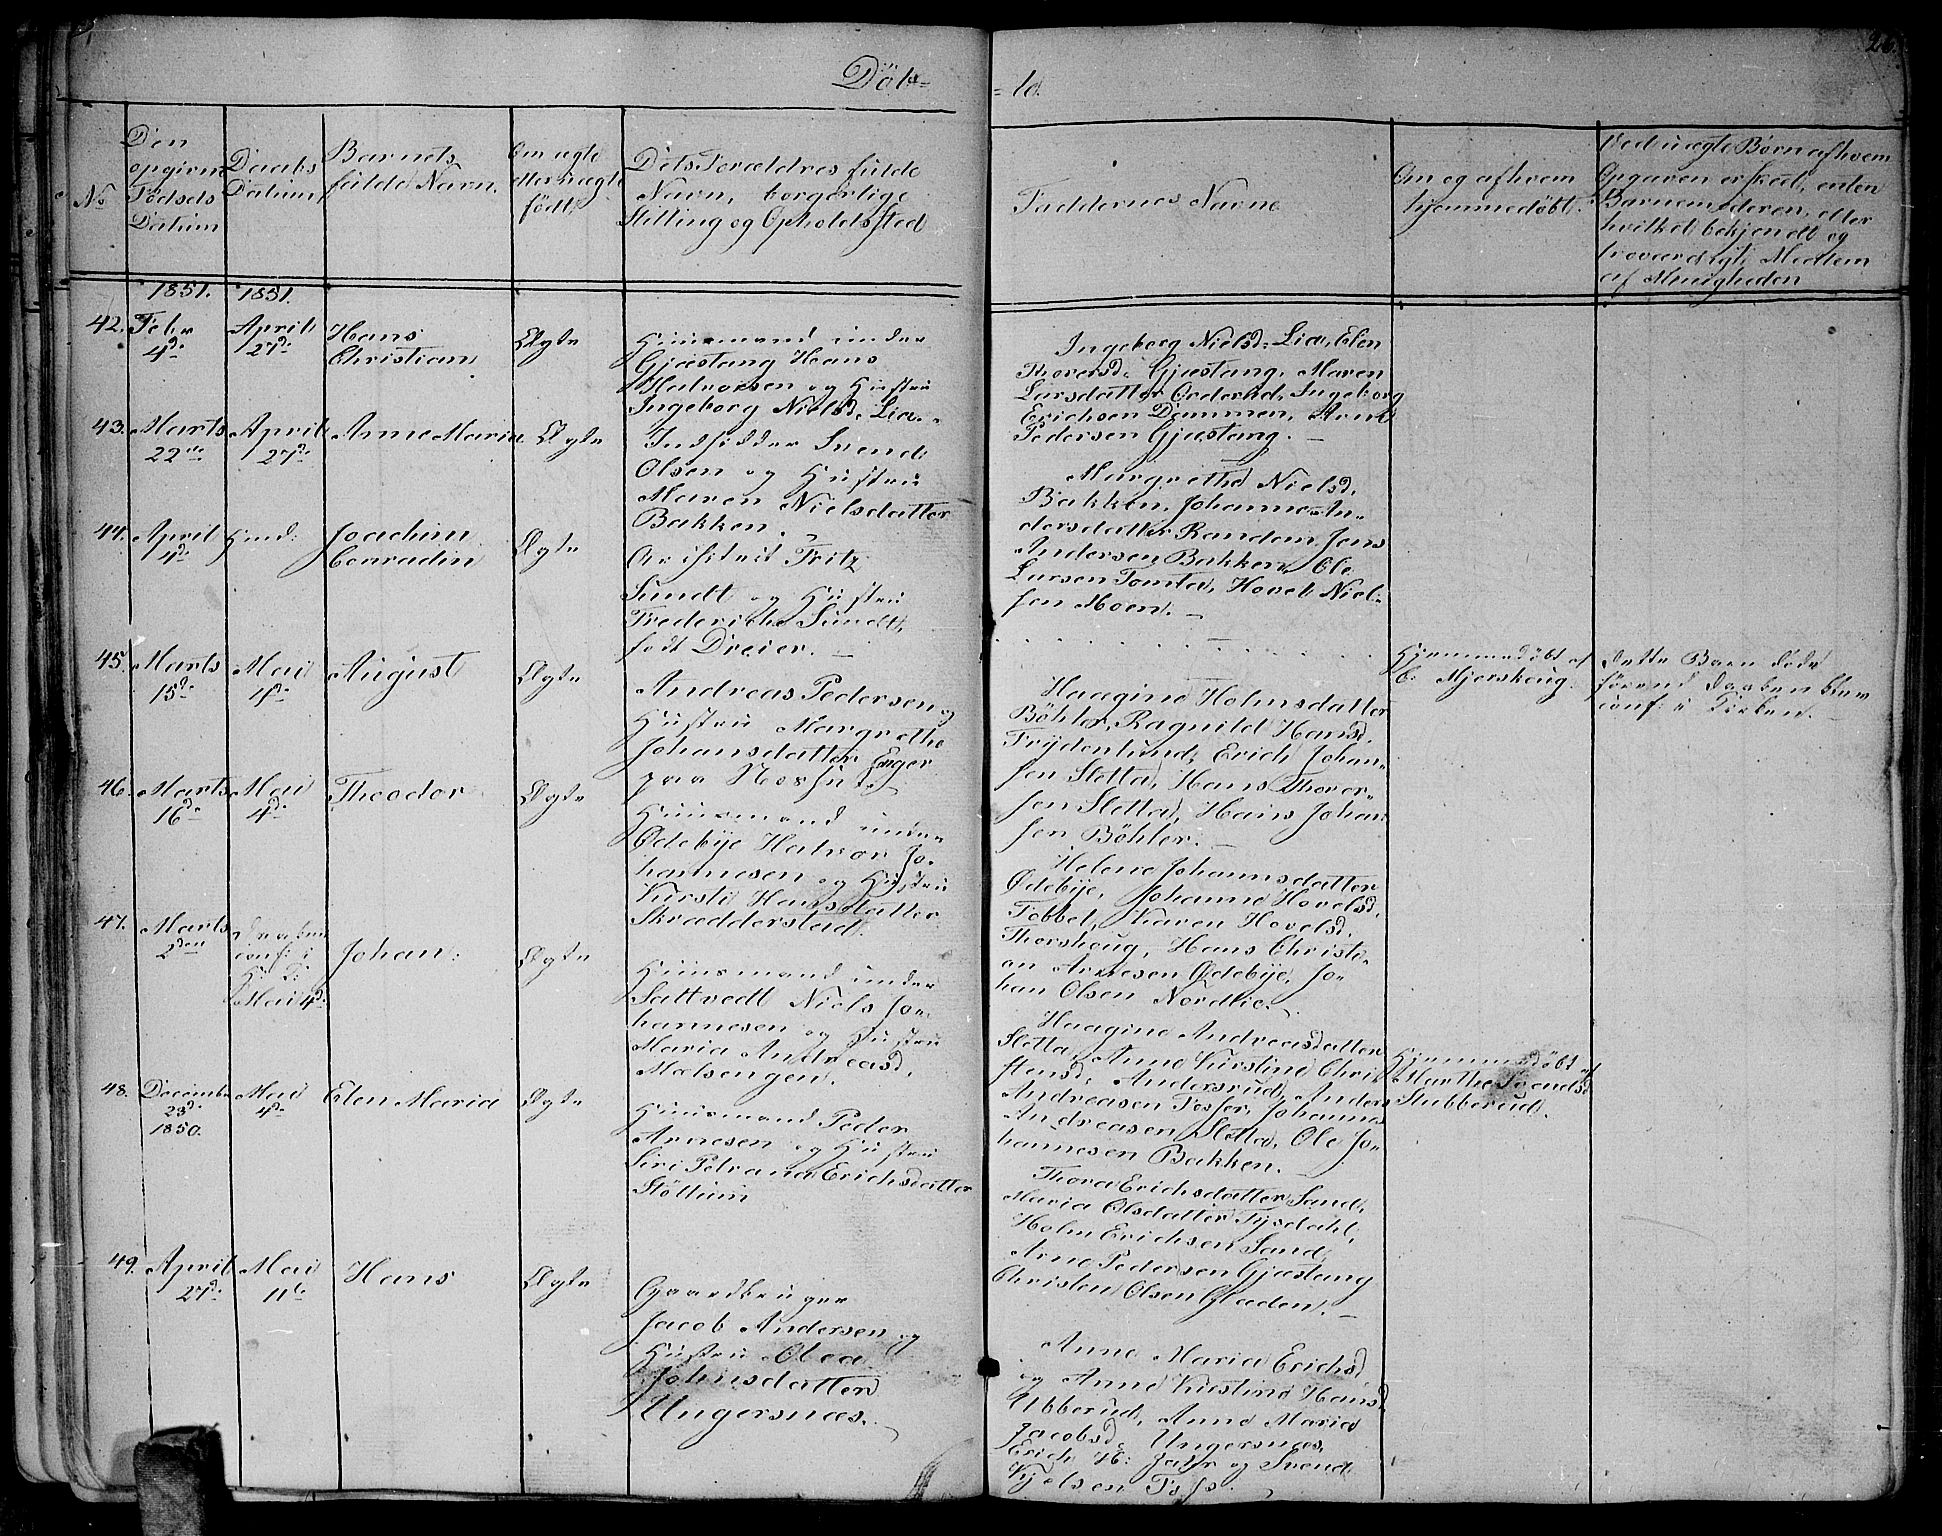 26.
Döb-
= te.
No
Den
opgivne
Födsels
Datum
Daabs
Datum
Barnets
fulde Navn.
Om ægte
eller uægte
født
Dets Forældres fulde
Navn, borgerlige
Stilling og Opholdssted
Faddernes Navne
Om og af hvem
hjemmedøbt.
Ved uægte Børn af hvem
Opgaven er skeet, enten
Barnemoderen, eller
hvilket bekjendt og
troværdigt Medlem
af Menigheden
1851. 1851.
42. Febr
4d.
April
27d.
Hans
Christian
Ægte
Huusmand under
Gjæstang Hans
Halvorsen og Hustru
Ingeborg Nielsd. Lia.
Ingeborg Nielsd. Lia, Elen
Thorersd. Gjæstang, Maren
Larsdatter Oderud, Ingeborg
Erichsen Dammen, Arne
Pedersen Gjæstang. —
43. Marts
22de
April
27d.
Anne Maria
Ægte
Indsidder Svend
Olsen og Hustru
Maren Nielsdatter
Bakken.
Margrethe Nielsd.
Bakken, Johanne An-
dersdatter Randem, Jens
Andersen Bakken, Ole
Larsen Tomta, Hovel Niel-
sen Moen. —
44. April
4d.
Joachim
Conradin
Ægte
Fritz
Sundt og Hustru
Frederiche Sundt,
født Dreier. —
Hjemmedøbt af
C. Mjerskoug.
Dette Barn døde
førend Daaben blev
conf: i Kirken. —
45. Marts
15d.
Mai
4d.
August
Ægte
Andreas Pedersen og
Hustru Margrethe
Johansdatter Enger
paa
Haagine Holmsdatter
Böhler, Ragnild Hansd.
Frydenlund, Erich Johan-
sen Sletta, Hans Thorer-
sen Sletta, Hans Johan-
sen Böhler. —
46. Marts
16d.
Mai
4d.
Theodor
Ægte
Huusmand under
Ødebye Halvor Jo-
hannesen og Hustru
Kirsti Hansdatter
Skræddersted.
Helene Johannsdatter
Ødebye, Johanne Hovelsd.
Tobbel, Karen Hovelsd.
Thorshoug, Hans Christi-
an Arnesen Ødebye, Jo-
han Olsen Nordlie.
47. Marts
2den
Daaben
conf: i
Mai 4d.
Johan.
Ægte
Huusmand under
Sattvedt Niels Jo-
hannesen og Hustru
Maria Andreasd.
Mælsengen.
Haagine Andreasdatter
Sletta, Anne Kirstine Chri-
stensd. Andersrud, Anders
Andreasen Tesser, Johannes
Andreasen Sletta, Ole Jo-
hannesen Bakken.
Hjemmedøbt af
Marthe Svendsd
Stubberud.
48. December
28d.
1850.
Mai
4d.
Elen Maria
Ægte
Huusmand Peder
Arnesen og Hustru
Siri Petrana Erichsdatter
Stöttum
Thora Erichsdatter Sand,
Maria Olsdatter Tysdahl,
Holm Erichsen Sand,
Arne Pedersen Gjæstang
Christen Olsen Gladen. —
49. April
27d.
Mai
11te
Hans
Ægte
Gaardbruger
Jacob Andersen og
Hustru Olea
Johnsdatter
Ungersnæs.
Anne Maria Erichsd.
og Anne Kirstine Hansd
Ubberud, Anne Maria
Jacobsd. Ungersnæs,
Erich H: og Svend
Kjelsen